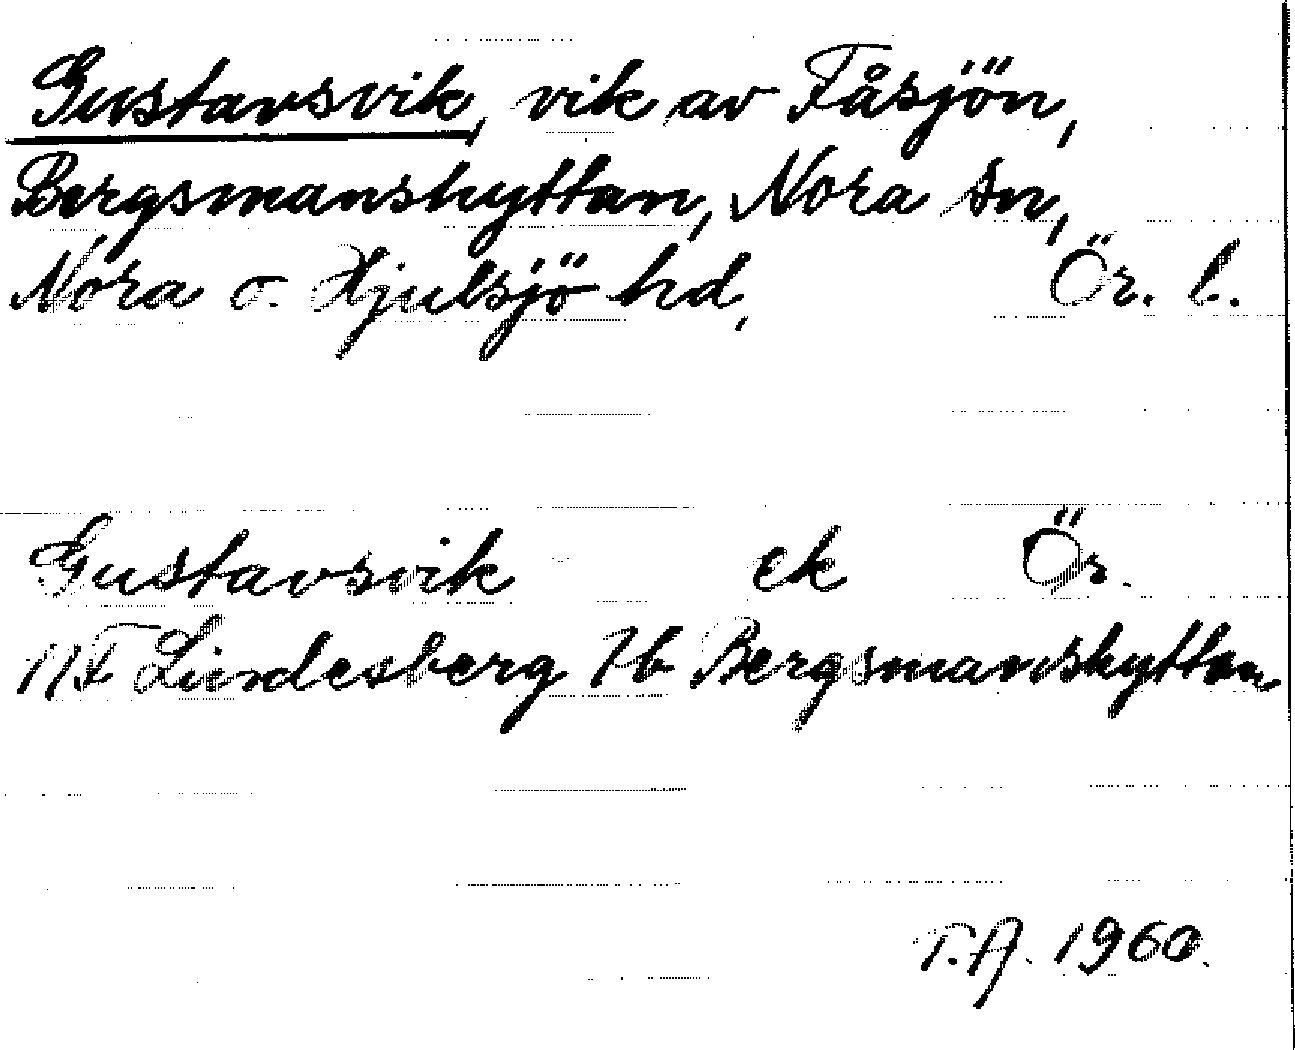 Gustavsvik, vik av Fåsjön,
Bergsmanshyttan, Nora sn,
Nora o. Hjulsjö hd, Ör. l.
Gustavsvik ek Ör.
11F Lindesberg 7b Bergsmanshyttan
T.A. 1960.